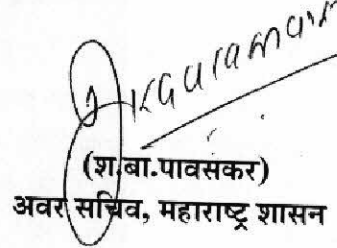 (श.बा.पावसकर)
अवर सचिव, महाराष्ट्र शासन